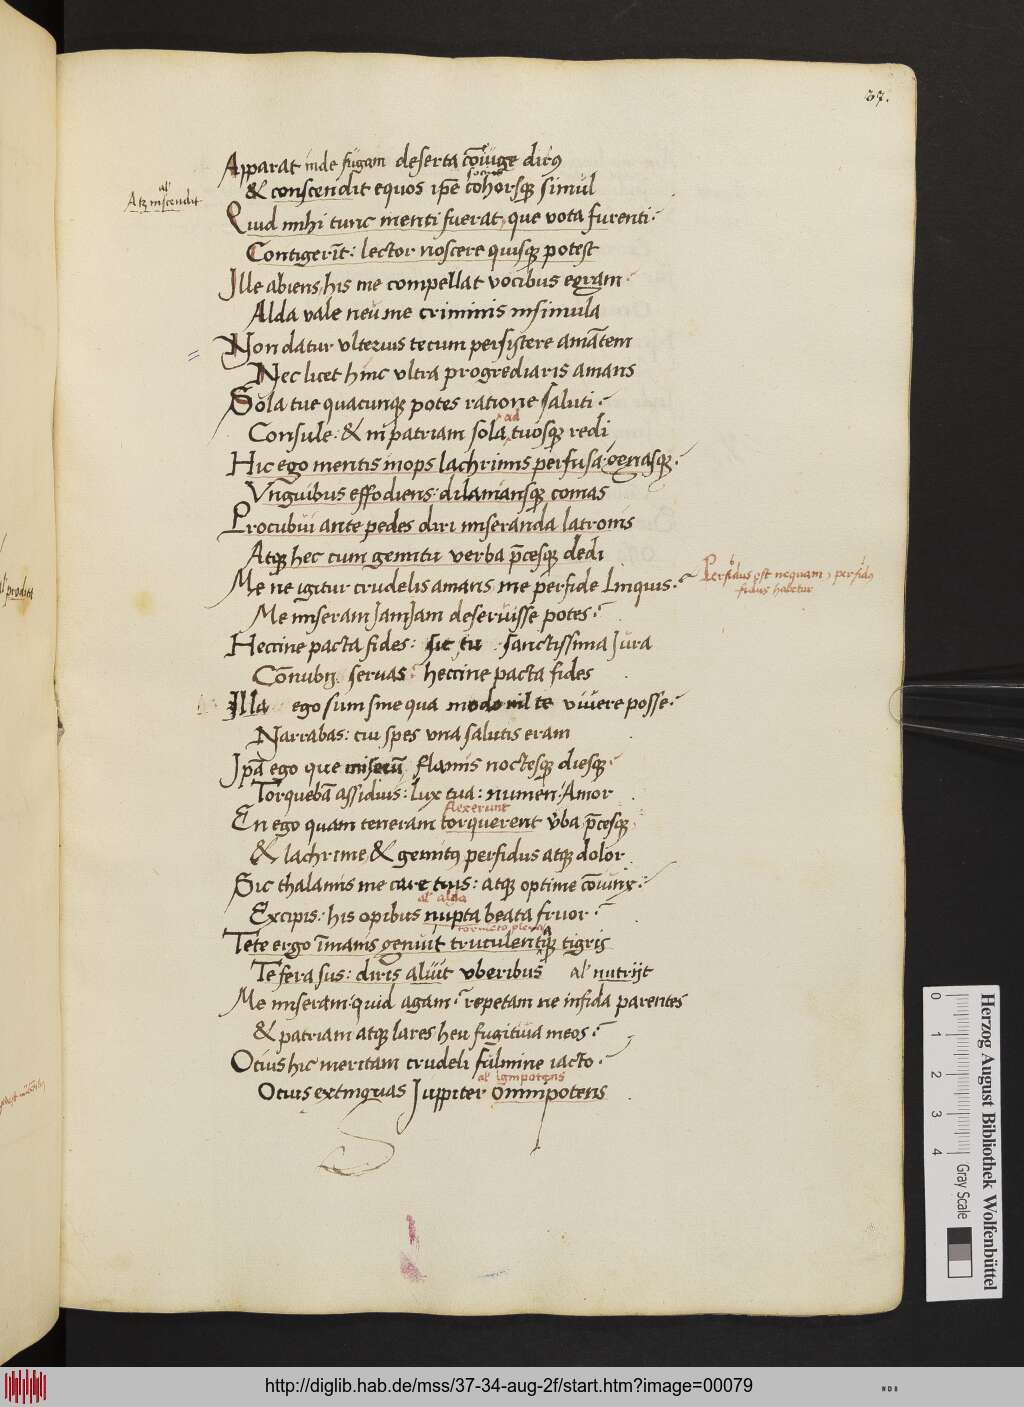 37.
Apparat inde fugam deserta cōiuge dirꝰ
socios
& conscendit equos ip̄e cohorsqꝫ simul
al'
Atqꝫ inscendit
Quid mihi tunc menti fuerat, que vota furenti·
Contigerīt: lector noscere quisqꝫ potest
Ille abiens, his me compellat vocibus egram·
Alda vale neu me criminis insimula
Non datur ulterius tecum persistere amātem
Nec licet hinc ultra progrediaris amans
Sola tue quacunqꝫ potes ratione saluti·
ad
Consule: & in patriam sola tuosqꝫ redi
Hic ego mentis inops lachrimis perfusa: genasqꝫ·
Unguibus effodiens: dilaniansqꝫ comas
Procubui ante pedes diri miseranda latronis
Atqꝫ hec cum gemitu verba p̄cesqꝫ dedi
Me ne igitur crudelis amans, me perfide linquis·
Perfidus est nequam, perfidꝰ
fidus habetur
Me miseram Jam Jam deseruisse potes·
Heccine pacta fides: sic tu sanctissima Jura
Cōnubij servas: heccine pacta fides
Illa ego sum sine qua modo nil te vivere posse·
Narrabas: cui spes una salutis eram
Ip̄a ego que miserū flamis noctesqꝫ diesqꝫ·
Torquebā assidius: lux tua: numen: Amor
flexerunt
En ego quam teneram torquerent v̄ba p̄cesqꝫ
& lachrime, & gemitꝰ perfidus atqꝫ dolor
Sic thalamis me care tuis: atqꝫ optime cōiunx·
al' alda
Excipis: his opibus nupta beata fruor·
Te te ergo īmanis genuit truculentaqꝫ tigris
Te fera sus: diris aluit uberibus al' nutrijt
Me miseram quid agam· repetam ne infida parentes
& patriam atqꝫ lares heu fugitiva meos·
Ocius hic meritam crudeli fulmine iacto·
al' ignipotens
Ocius extinguas Juppiter omnipotens
Herzog August Bibliothek Wolfenbüttel
0 1 2 3 4
Gray Scale
http://diglib.hab.de/mss/37-34-aug-2f/start.htm?image=00079